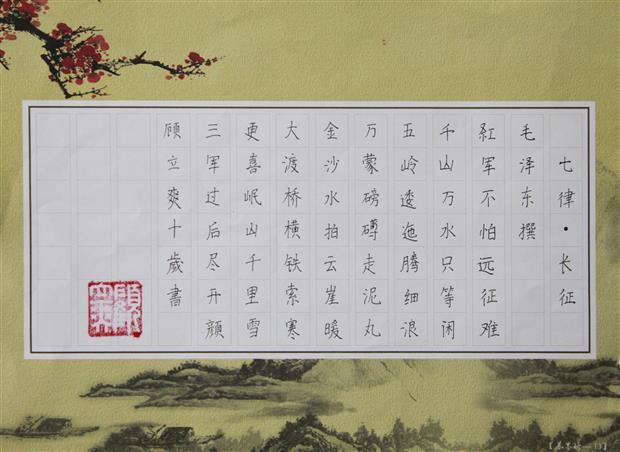 七律·长征
毛泽东撰
红军不怕远征难
千山万水只等闲
五岭逶迤腾细浪
万蒙磅礴走泥丸
金沙水拍云崖暖
大渡桥横铁索寒
更喜岷山千里雪
三军过后尽开颜
顾立爽十歲書